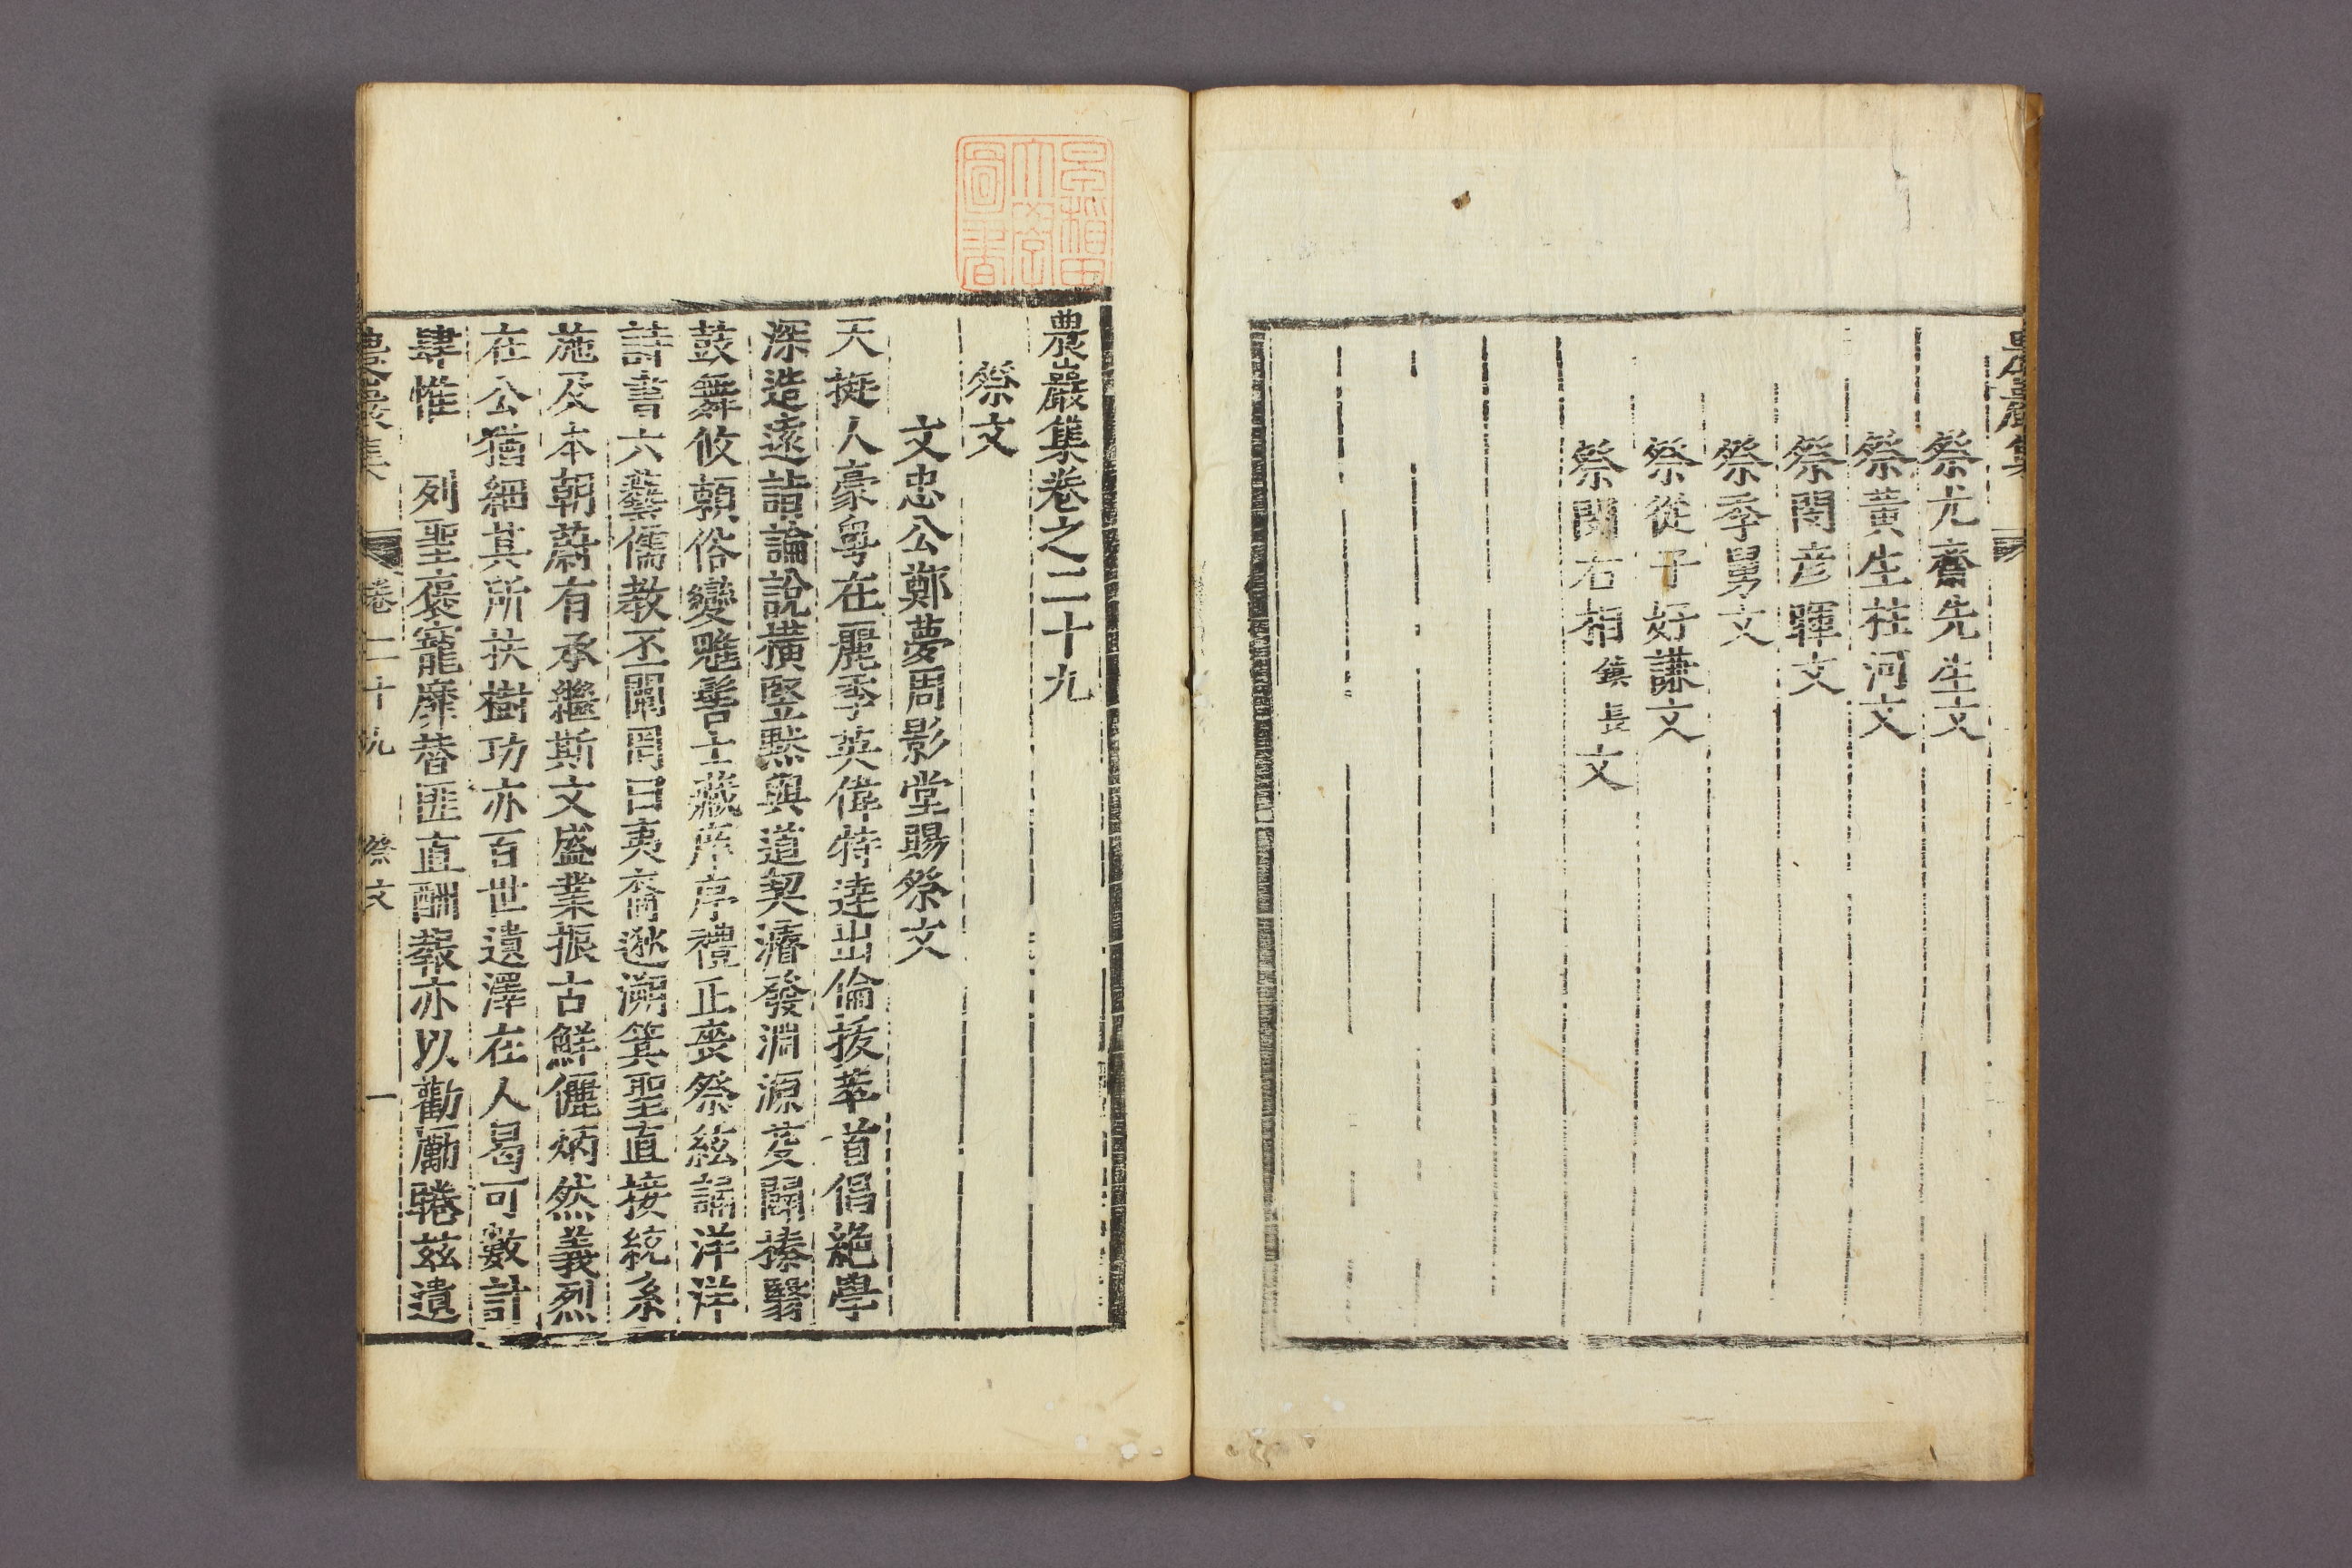 農巖集
祭尤齋先生文
祭黃生柱河文
祭閔彦暉文
祭季舅文
祭從子好謙文
祭閔右相鎭長文
早稲田
大學
圖書
農巖集卷之二十九
祭文
文忠公鄭夢周影堂賜祭文
天挺人豪粤在麗季英偉特達出倫拔萃首倡絶學
深造遠詣論說橫竪默與道契濬發淵源芟闢榛翳
鼓舞攸頼俗變雕髻士藏庠序禮正喪祭絃誦洋洋
詩書六藝儒教丕闡罔曰夷裔逖溯箕聖直接統系
施及本朝蔚有承繼斯文盛業振古鮮儷炳然義烈
在公猶細其所扶樹功亦百世遺澤在人曷可數計
肆惟 列聖褒寵靡替匪直酬報亦以勸勵睠玆遺
農巖集 卷二十九 祭文 一